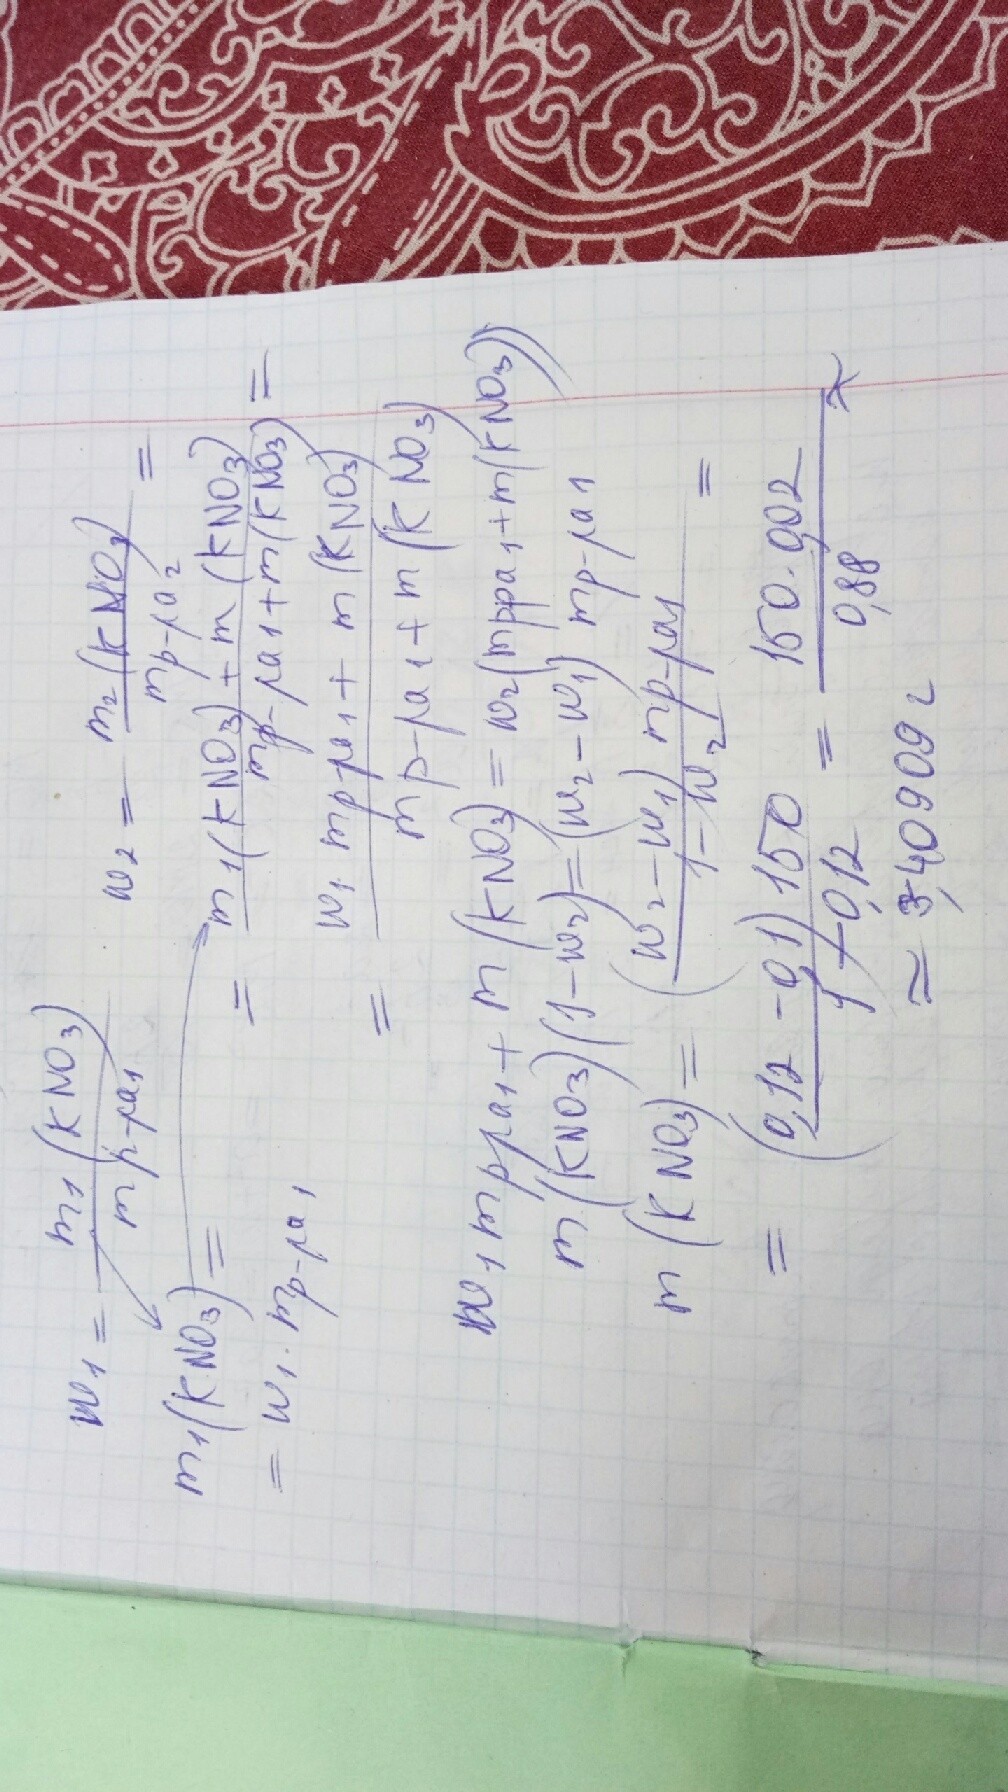 w₁ = m₁(KNO₃) / mр-ра₁
m₁(KNO₃) =
= w₁ · mр-ра₁
w₂ = m₂(KNO₃) / mр-ра₂ =
= (m₁(KNO₃) + m(KNO₃)) / (mр-ра₁ + m(KNO₃)) =
= (w₁ · mр-ра₁ + m(KNO₃)) / (mр-ра₁ + m(KNO₃))
w₁ mрра₁ + m(KNO₃) = w₂(mрра₁ + m(KNO₃))
m(KNO₃)(1 - w₂) = (w₂ - w₁) mр-ра₁
m(KNO₃) = (w₂ - w₁) mр-ра₁ / (1 - w₂) =
= (0,12 - 0,1) 150 / (1 - 0,12) = 150 · 0,02 / 0,88 ≈
≈ 3,40909 г